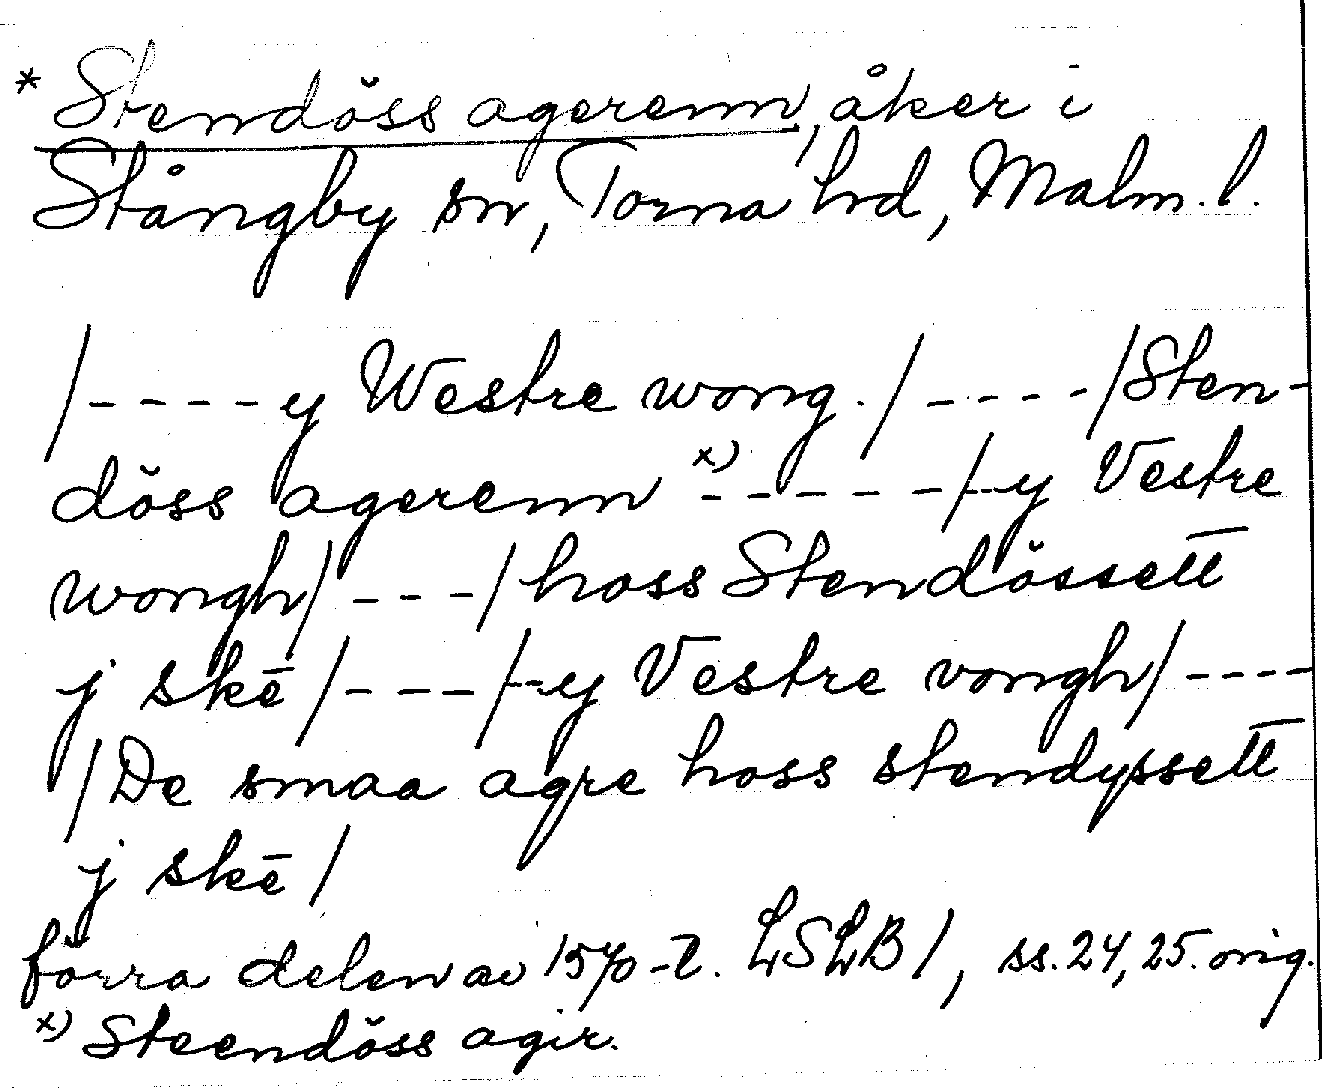 * Stendöss agerenn, åker i
Stångby sn, Torna hd, Malm. l.
/----y Westre wong./----/Sten-
döss agerenn x)-----/--y Vestre
wongh/---/hoss Stendössett
j skē/---/--y Vestre vongh/----
/De smaa agre hoss stendyssett
j skē/
förra delen av 1570-t. LSLB 1, ss. 24, 25. orig.
x) Steendöss agir.